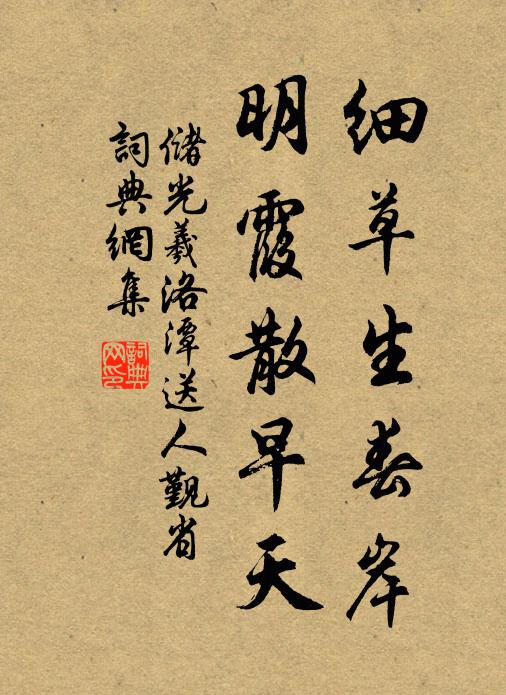 细草生春岸
明霞散早天
储光羲洛潭送人觐省
詞典網集
詞典网印